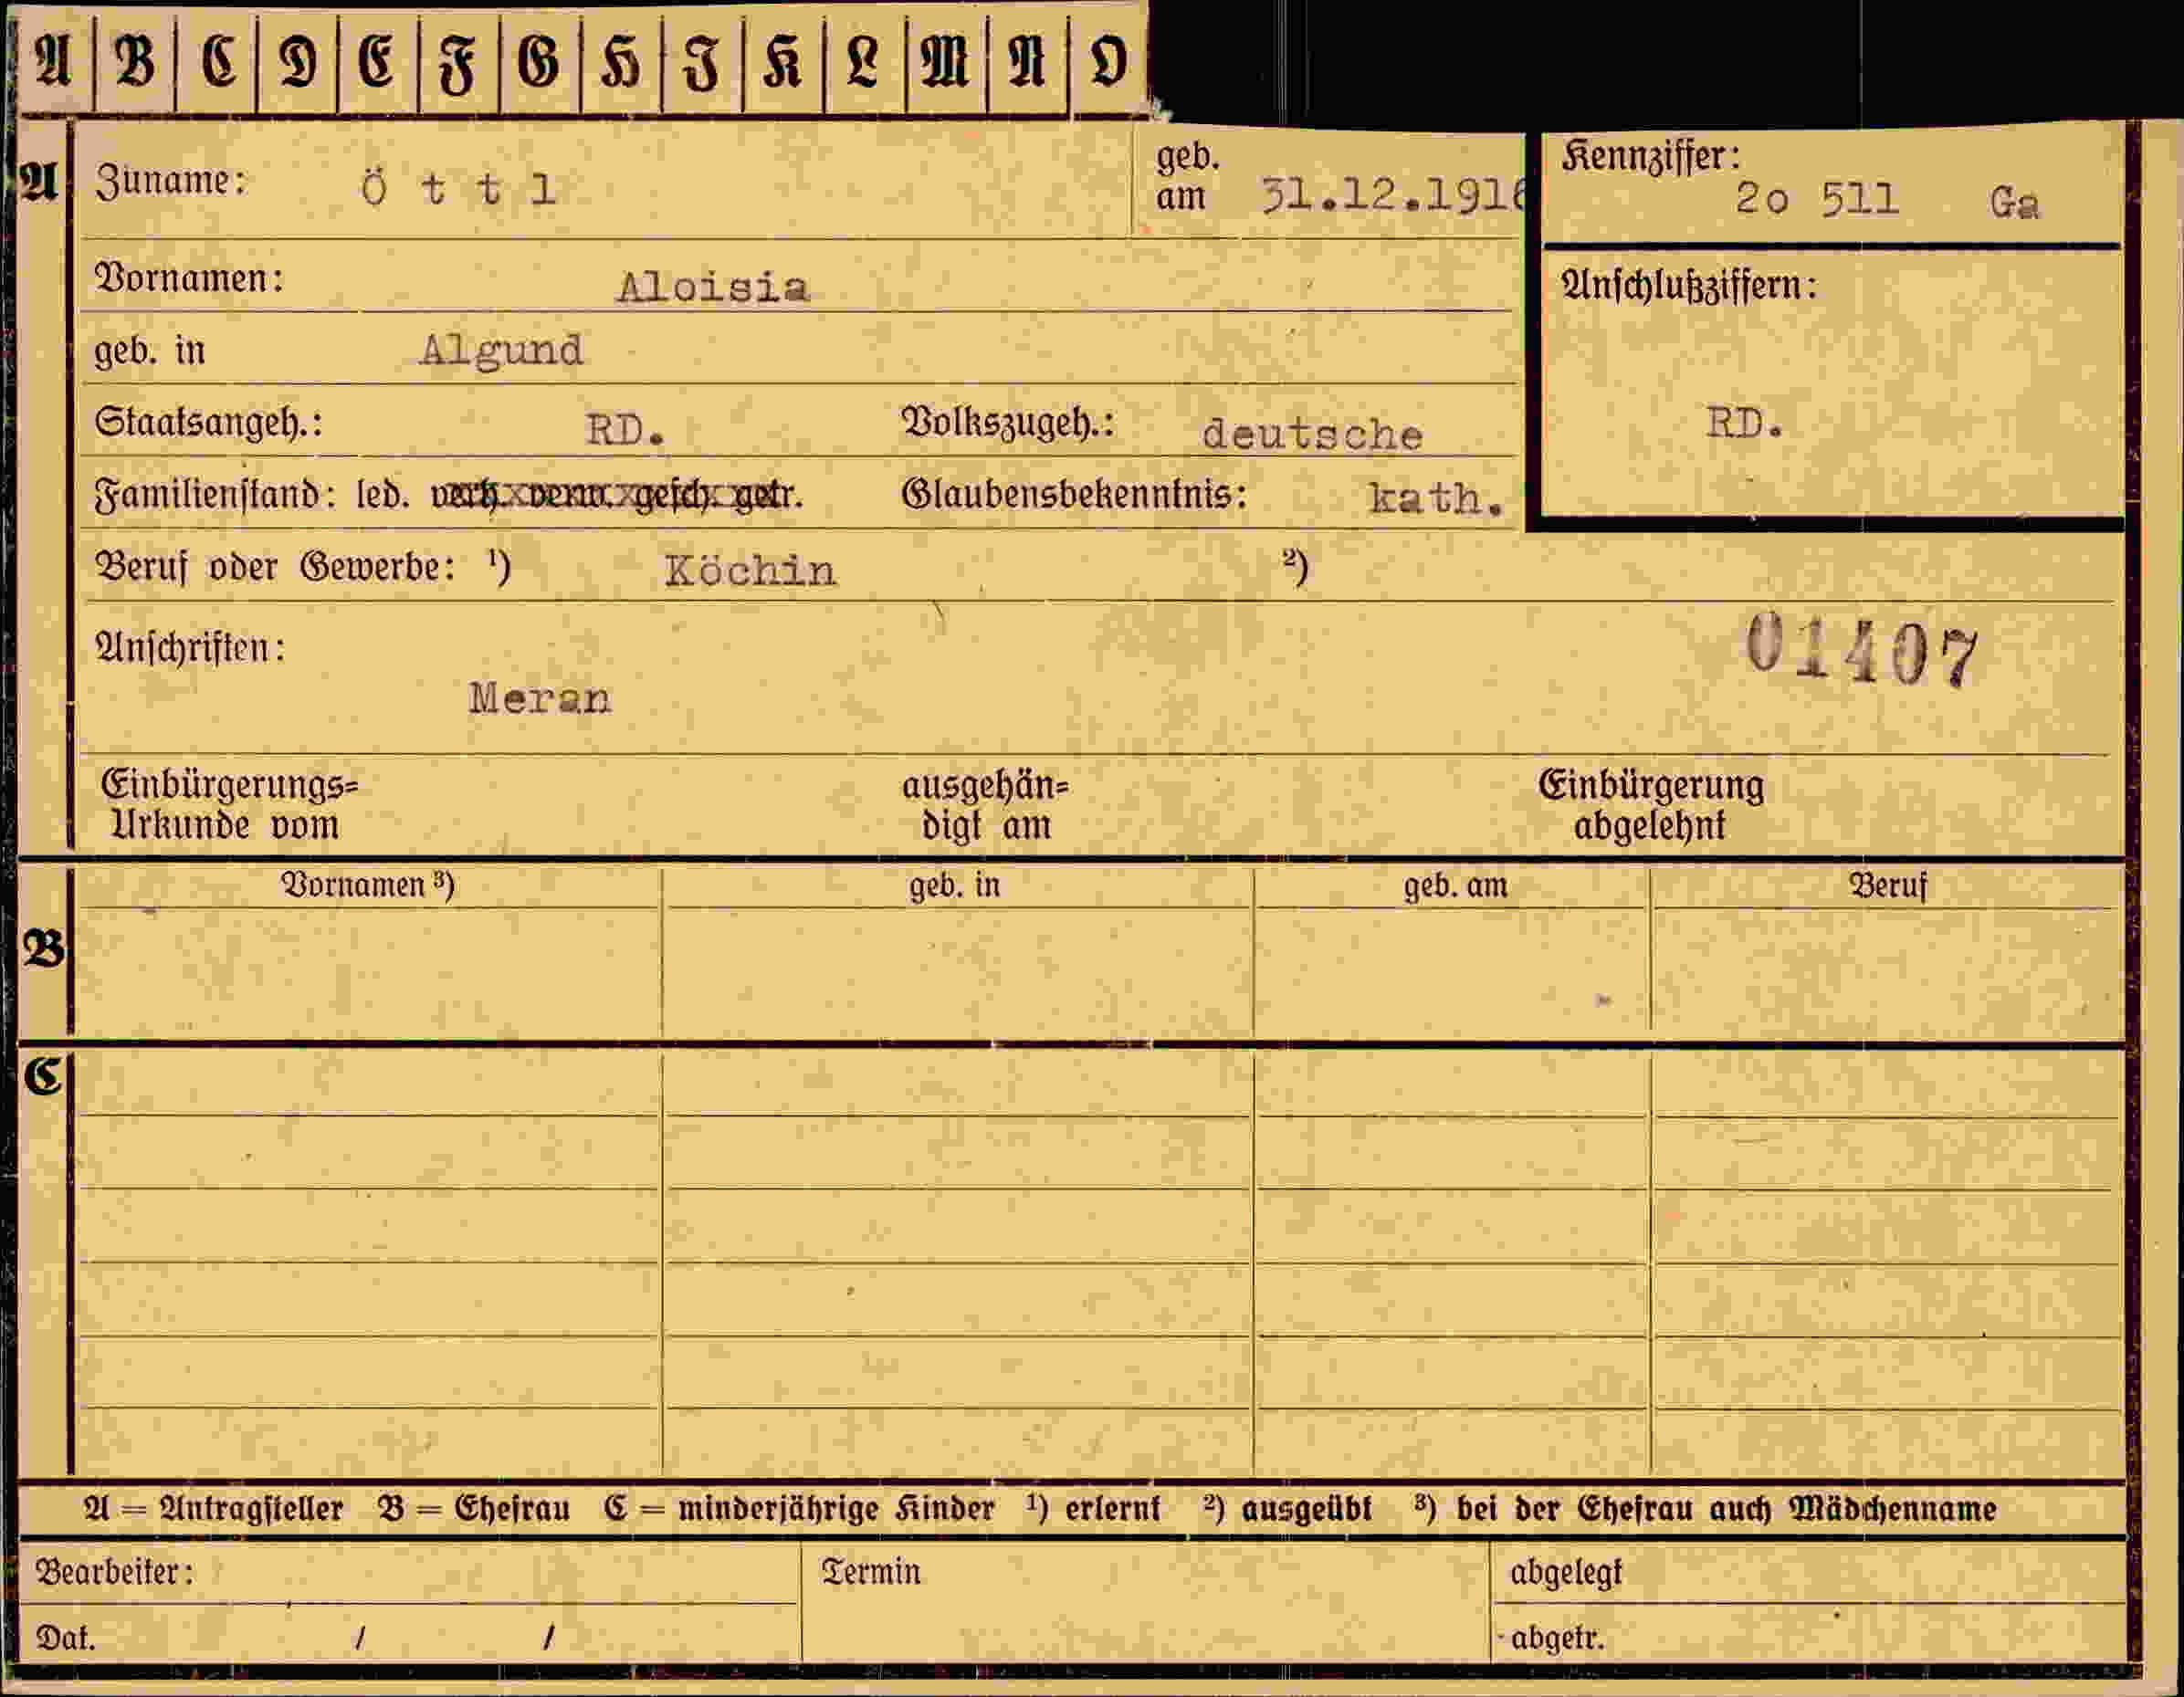 A B C D E F G H I K L M N O
A Zuname: Öttl geb. am 31.12.1916 Kennziffer: 2o 511 Ga
Vornamen: Aloisia Anschlußziffern:
geb. in Algund
Staatsangeh.: RD. Volkszugeh.: deutsche RD.
Familienstand: led. verh. verw. gesch. getr. Glaubensbekenntnis: kath.
Beruf oder Gewerbe: ¹) Köchin ²)
Anschriften: 01407
Meran
Einbürgerungs= ausgehän= Einbürgerung
Urkunde vom digt am abgelehnt
Vornamen ³) geb. in geb. am Beruf
B
C
A = Antragsteller B = Ehefrau C = minderjährige Kinder ¹) erlernt ²) ausgeübt ³) bei der Ehefrau auch Mädchenname
Bearbeiter: Termin abgelegt
Dat. / / abgetr.